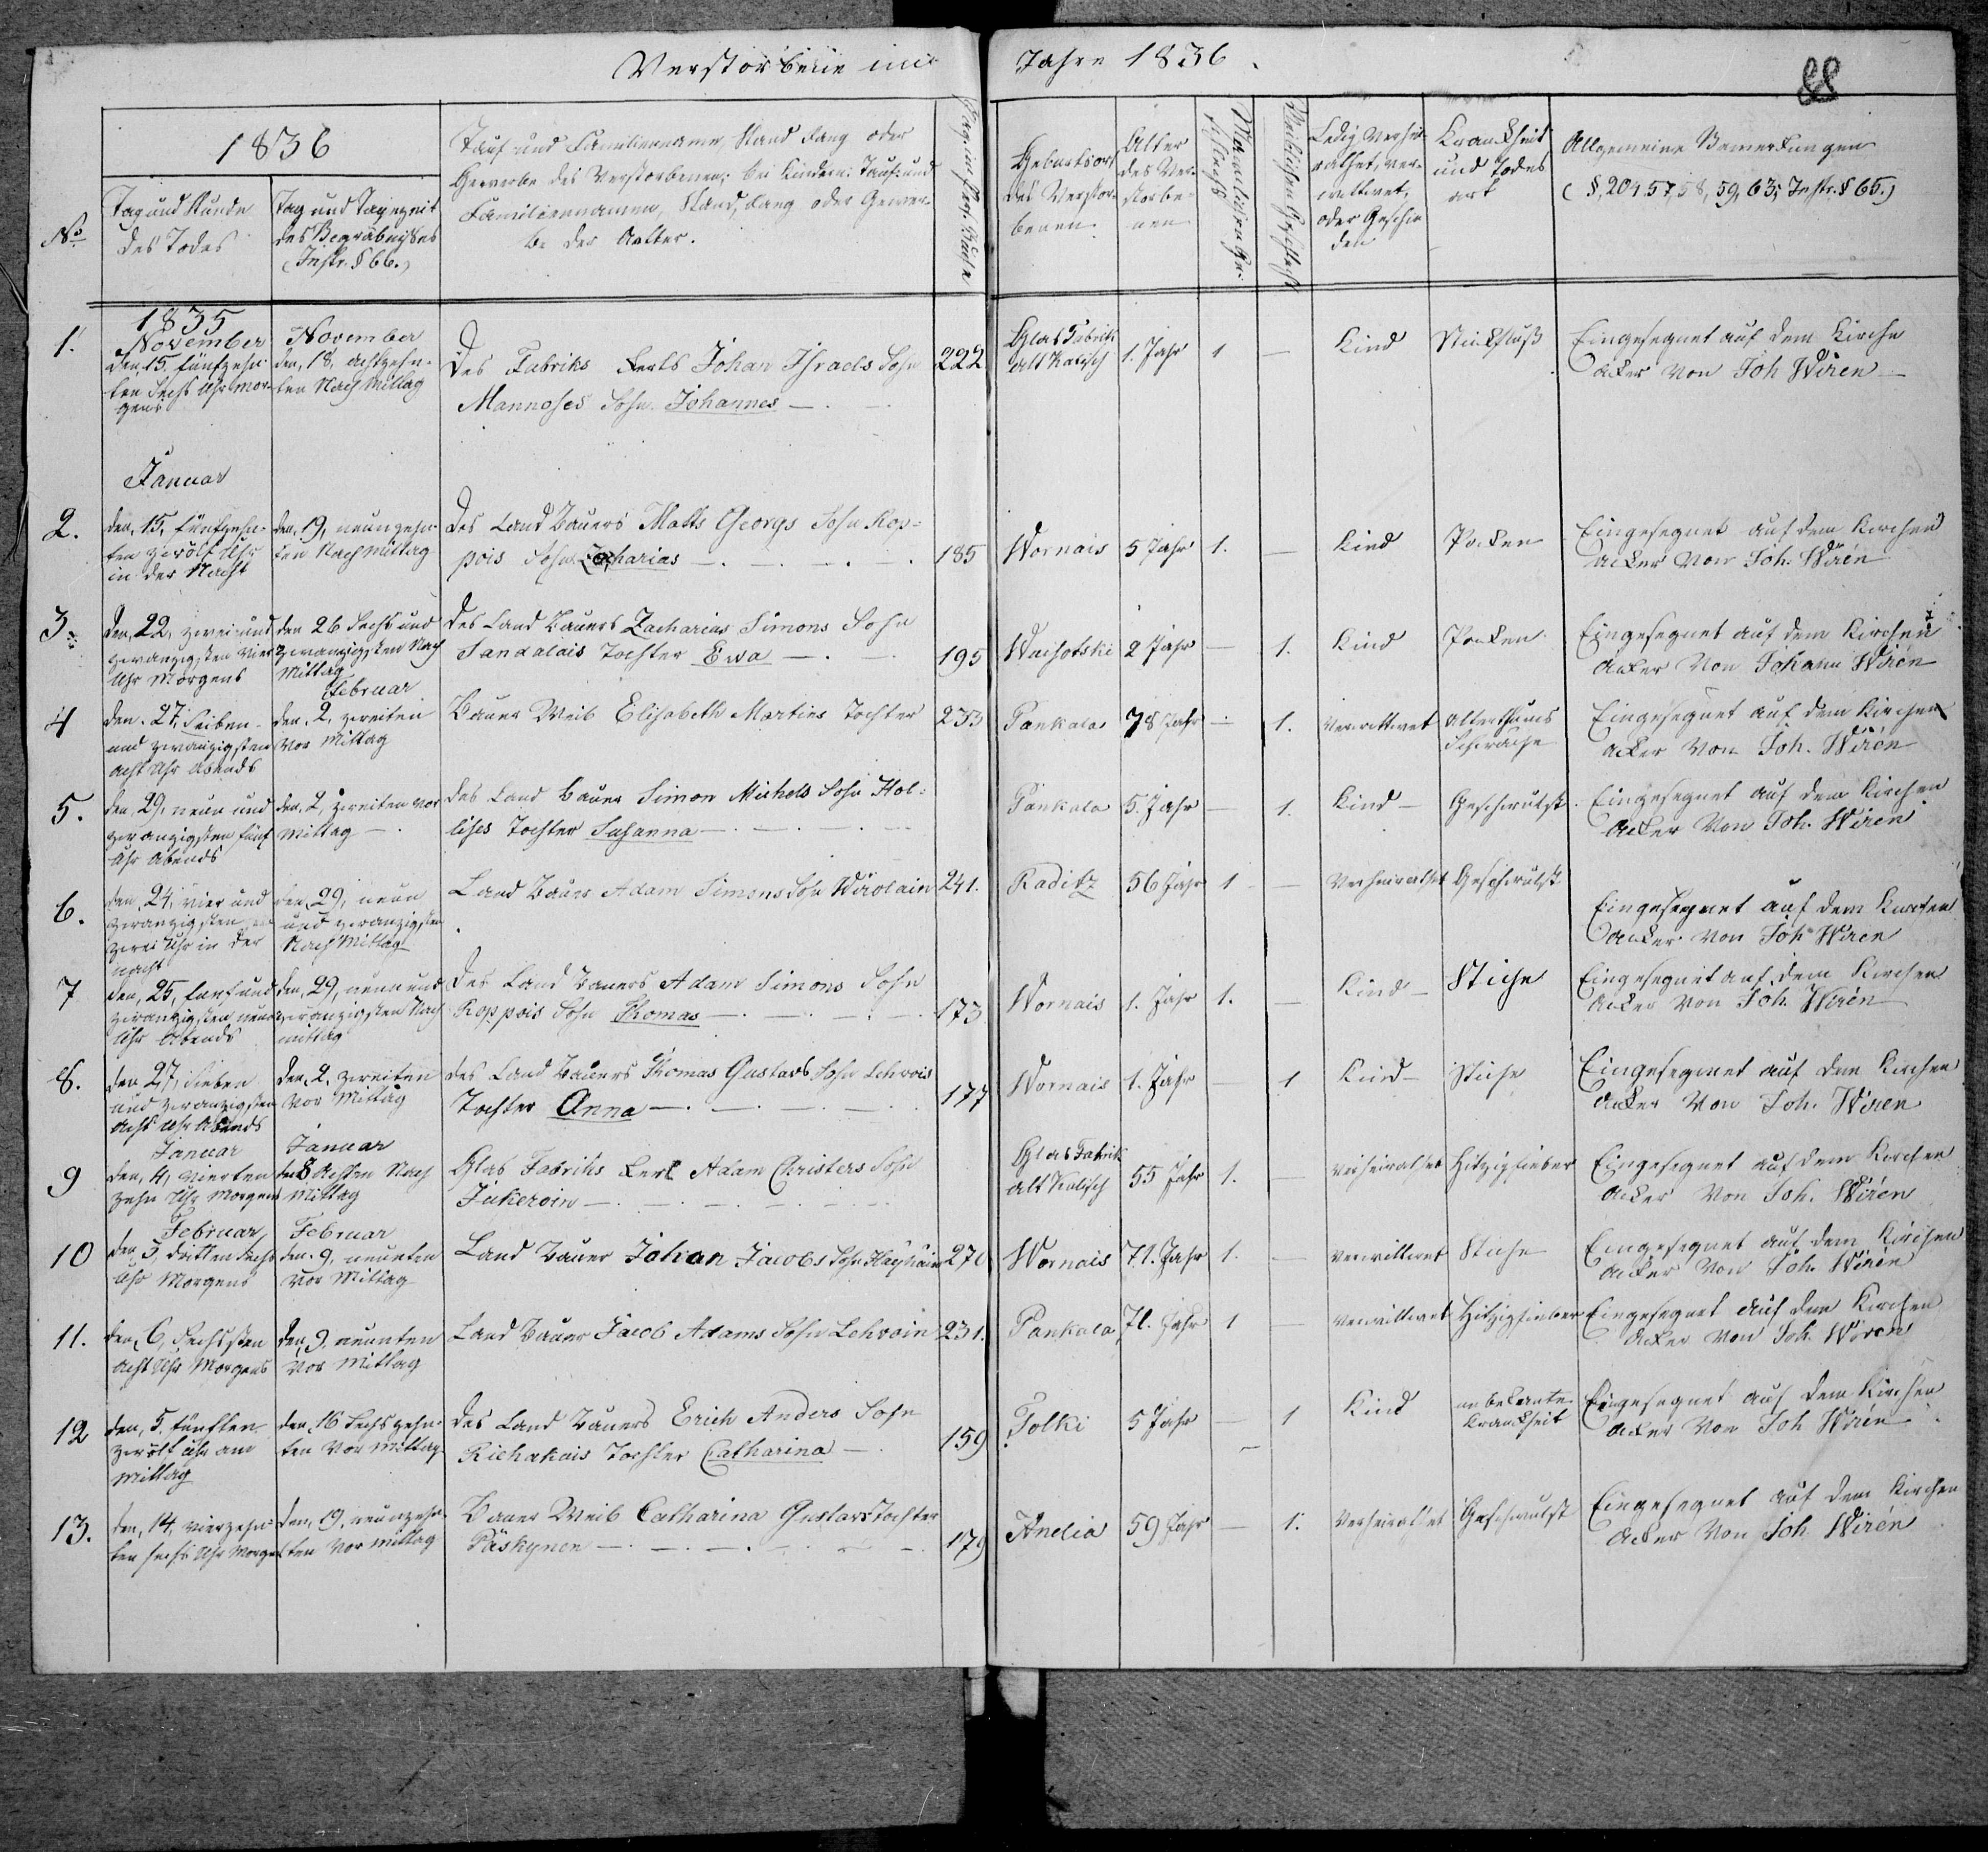 Verstorbene im Jahre 1836.
88
1836
No
Tag und Stunde
des Todes
Tag und Tageszeit
des Begräbnißes
(Instr. § 66.)
Tauf und Familienname, Stand, Rang oder
Gewerbe des Verstorbenen; bei Kindern: Tauf- und
Familiennamen, Stand, Rang oder Gewer-
be der Aelter.
Geburtsort
des Verstor-
benen
Alter
des Ver-
storbe-
nen
Männlichen Ge-
schlechts
Weiblichen Geschlechts
Ledig, Verhei-
rathet, ver-
wittwet,
oder Geschie
den
Krankheit
und Todes
art
Allgemeine Bemerkungen
(§, 204, 57, 58, 59, 63; Instr. § 65.)
1.
1835
November
Den, 15, fünfzehn-
ten Sechs Uhr mor-
gens
November
den, 18, achtzehn-
ten Nach Mittag
Des Fabriks Kerls Johan Israels Sohn
Mannoses Sohn Johannes
222
Glas Fabrik
alt Kalisch
1. Jahr
1
—
Kind
Stickfluß
Eingesegnet auf dem Kirche
acker Von Joh Wiren
Januar
2.
den, 15, fünfzehn-
ten zwölf Uhr
in der Nacht
den, 19, neunzehn-
ten Nachmittag
Des Land Bauers Matts Georgs Sohn Rop-
pois Sohn Zacharias
185
Wornais
5 Jahr
1.
—
Kind
Pocken
Eingesegnet auf dem Kirchen
acker Von Joh. Wirén
3.
den, 22, zwei und
zwanzigsten vier
Uhr Morgens
den 26 Sechs und
zwanzigsten Nach
Mittag
Des Land Bauers Zacharias Simons Sohn
Sandalais Tochter Ewa
195
Waisotski
2 Jahr
—
1.
Kind
Pocken
Eingesegnet auf dem Kirchen
acker Von Johann Wirén
4
den. 27, Sieben
und zwanzigsten
acht Uhr Abends
Februar
den, 2, zweiten
Vor Mittag
Bauer Weib Elisabeth Martins Tochter
233
Pankala
78 Jahr
—
1.
Verwittwet
Alterthums
Schwäche
Eingesegnet auf dem Kirchen
acker Von Joh. Wirén
5.
den, 29, neun und
zwanzigsten fünf
Uhr Abends
den, 2, zweiten vor
Mittag
des Land Bauer Simon Michels Sohn Hol-
lises Tochter Susanna
Pankala
5. Jahr
—
1.
Kind
Geschwulst
Eingesegnet auf dem Kirchen
acker Von Joh. Wirén
6.
den, 24, vier und
zwanzigsten
zwei Uhr in der
nacht
den, 29, neun
und zwanzigsten
Nach Mittag
Land Bauer Adam Simons Sohn Wirolain
241.
Raditz
56 Jahr
1
—
Verheirathet
Geschwulst
Eingesegnet auf dem Kirchen
acker Von Joh Wiren
7
den, 25, fünf und
zwanzigsten neun
Uhr Abends
den, 29, neun und
zwanzigsten Nach
mittag
Des Land Bauers Adam Simons Sohn
Roppois Sohn Thomas
173
Wornais
1. Jahr
1.
—
Kind
Stiche
Eingesegnet auf dem Kirchen
acker Von Joh. Wirén
8.
den 27, Sieben
und zwanzigsten
acht Uhr Abends
den, 2, zweiten
Vor Mittag
des Land Bauers Thomas Gustavs Sohn Lehvois
Tochter Anna
177
Wornais
1. Jahr
—
1
Kind
Stiche
Eingesegnet auf dem Kirchen
acker Von Joh. Wiren
9
Januar
den, 4, vierten
zehn Uhr Morgens
Januar
den 8 Achten Nach
Mittag
Glas Fabriks Kerl Adam Christers Sohn
Jukeroin
Glas Fabrik
alt Kalisch
55 Jahr
1.
—
Verheirathet
Hitzigfieber
Eingesegnet auf dem Kirchen
acker Von Joh. Wirén
10
Februar
den 3, dritten Sechs
Uhr Morgens
Februar
den. 9, neunten
vor Mittag
Land Bauer Johan Jacobs Sohn
Wornais
71. Jahr
1.
—
Verwittwet
Stiche
Eingesegnet auf dem Kirchen
acker Von Joh. Wirén
11.
den, 6, Sechsten
acht Uhr Morgens
den, 9, neunten
Vor Mittag
Land Bauer Jacob Adams Sohn Lehvoin
231.
Pankala
71. Jahr
1
—
Verwittwet
Hitzigfieber
Eingesegnet auf dem Kirchen
acker Von Joh. Wiren
12
den, 5, fünften
zwölf Uhr am
Mittag
den, 16 Sechszehn-
ten Vor Mittag
Des Land Bauers Erich Anders Sohn
Riehakais Tochter Catharina
159
Tolki
5 Jahr
—
1
Kind
unbekante
Krankheit
Eingesegnet auf dem Kirchen
acker Von Joh Wirén
13.
den, 14, vierzehn-
ten sechs Uhr Morgens
den, 19, neunzehn-
ten Vor Mittag
Bauer Weib Catharina Gustavs Tochter
Päskynen
179
Anelia
59 Jahr
—
1.
Verheirathet
Geschwulst
Eingesegnet auf dem Kirchen
acker Von Joh Wirén